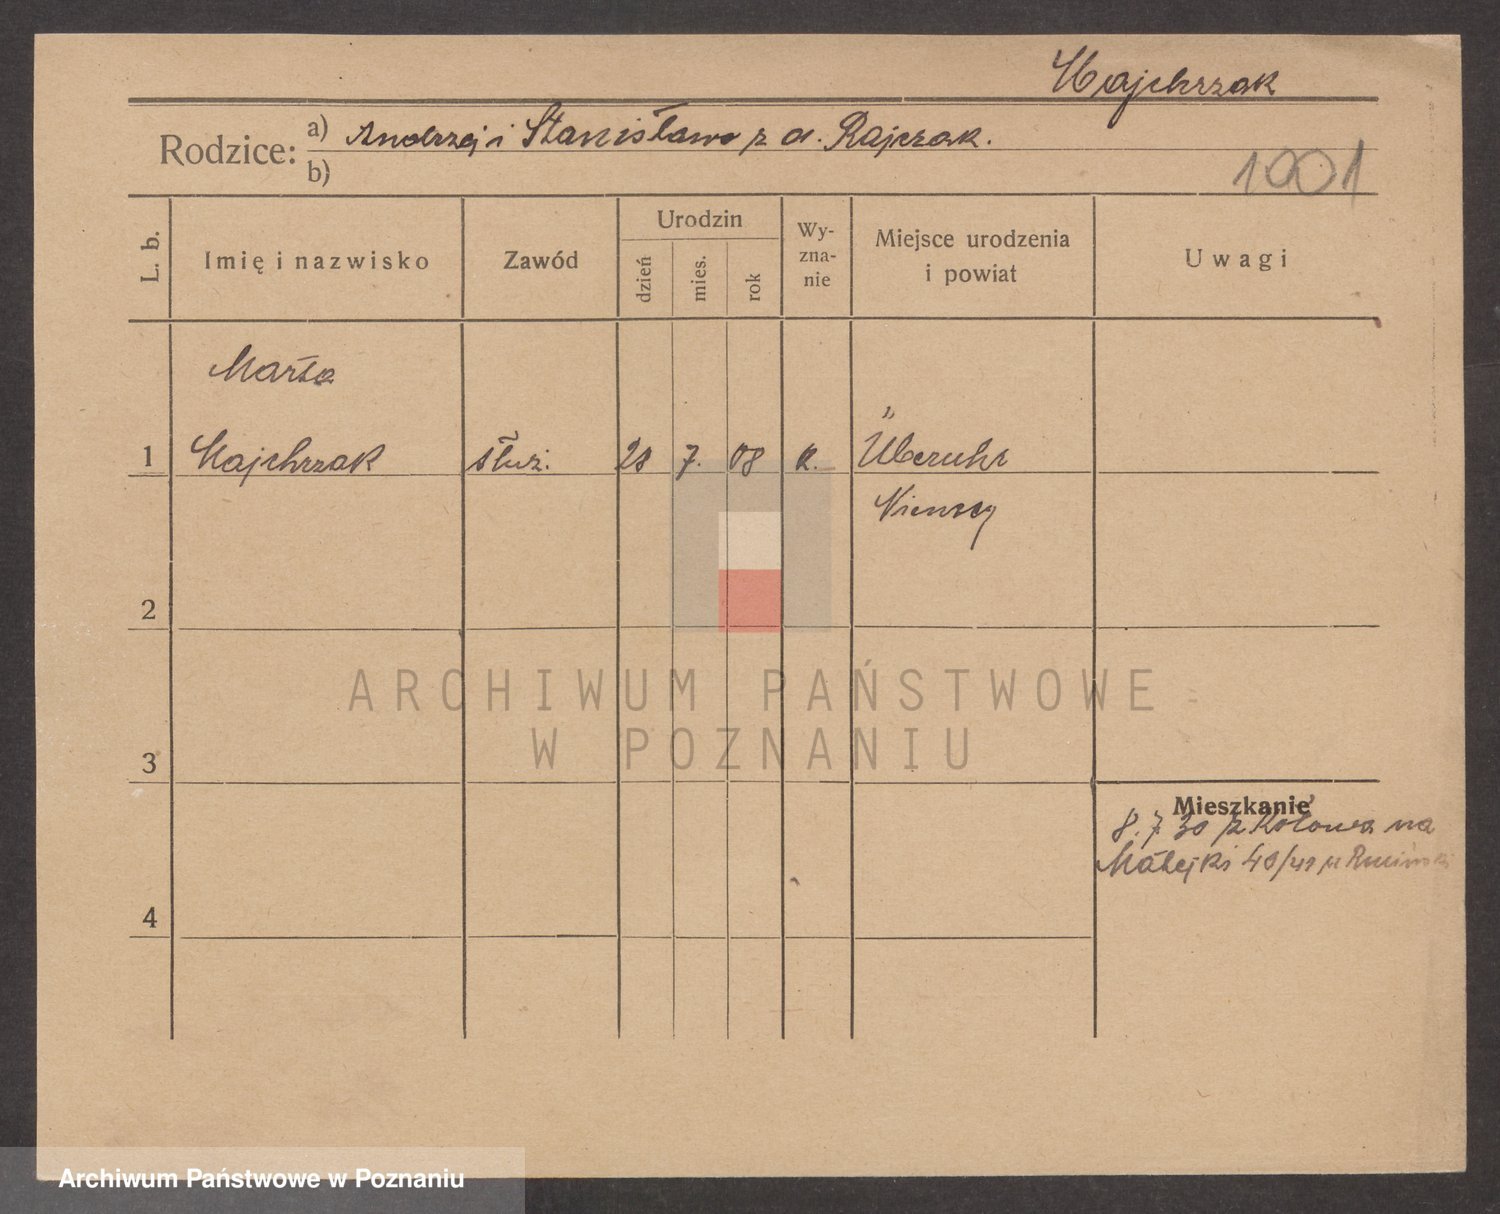 Majchrzak
Rodzice: a) Andrzej i Stanisława z d. Rajczak.
b)
1901
L. b. Imię i nazwisko Zawód Urodzin dzień mies. rok Wyzna-nie Miejsce urodzenia i powiat Uwagi
Marta
1 Majchrzak służ. 28 7. 08 k. Überuhr
Niemcy
2
ARCHIWUM PAŃSTWOWE
W POZNANIU
3
Mieszkanie
8. 7 30 z Kołowa na
Matejki 40/41 u
4
Archiwum Państwowe w Poznaniu